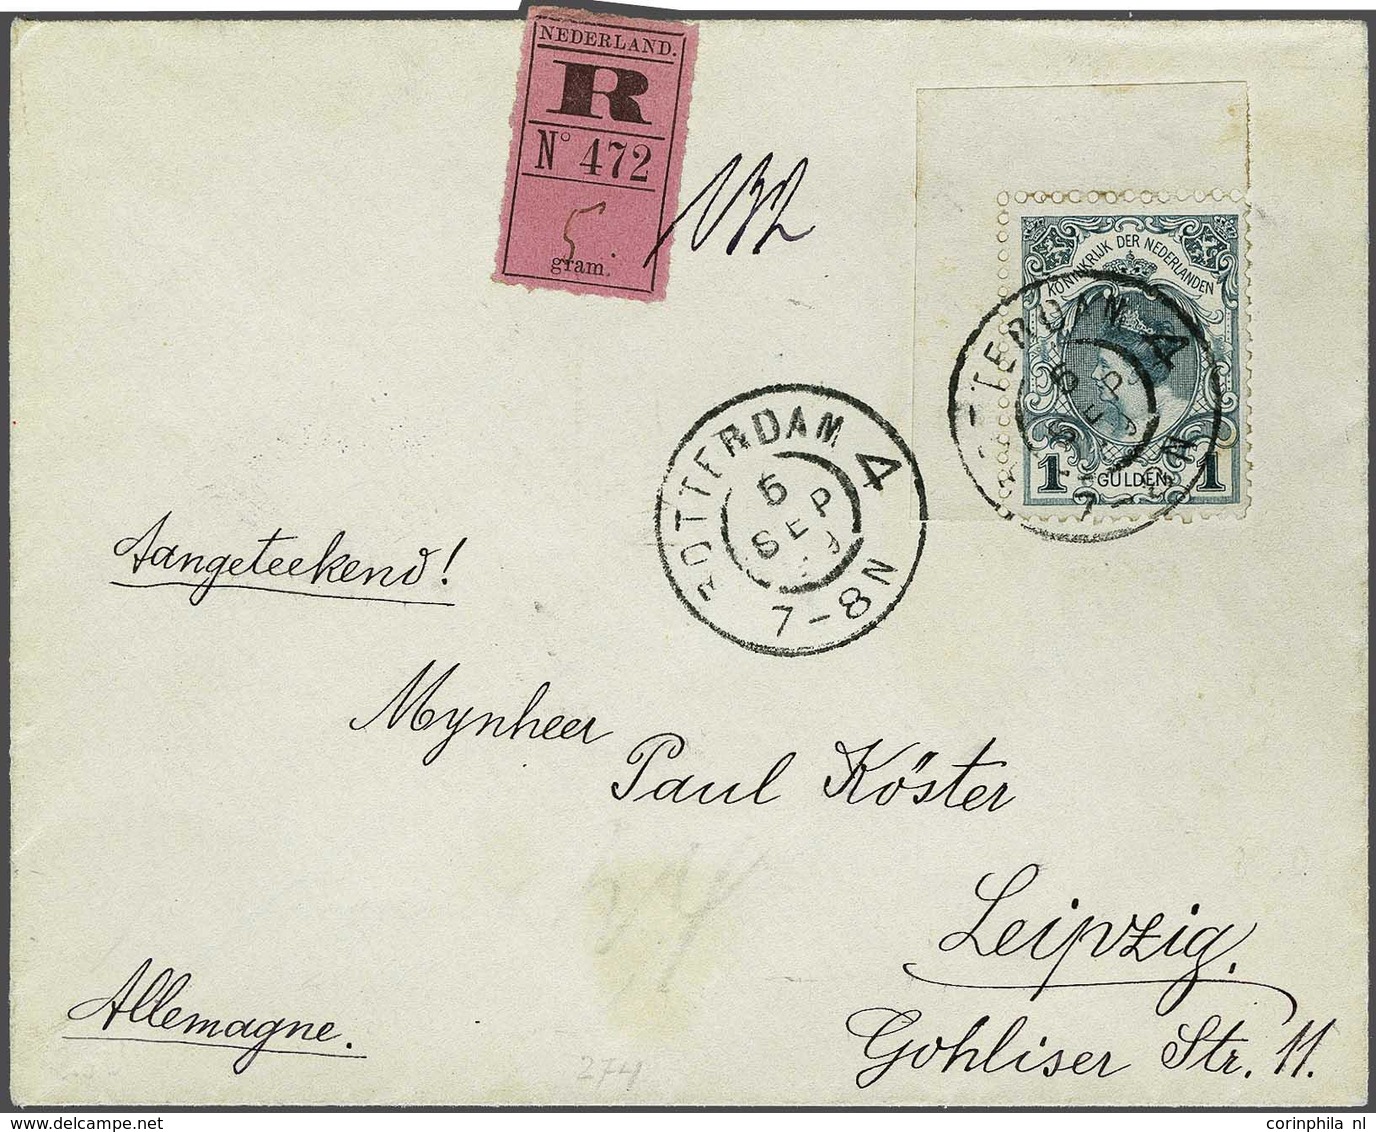 NEDERLAND.
R
N° 472
5
gram.
132
KONINKRIJK DER NEDERLANDEN
1 GULDEN 1
TERDAM 4
5
SEP
ROTTERDAM 4
5
SEP
7-8N
Aangeteekend!
Mynheer
Paul Köster
Leipzig.
Gohliser Str. 11.
Allemagne.
274
corinphila nl